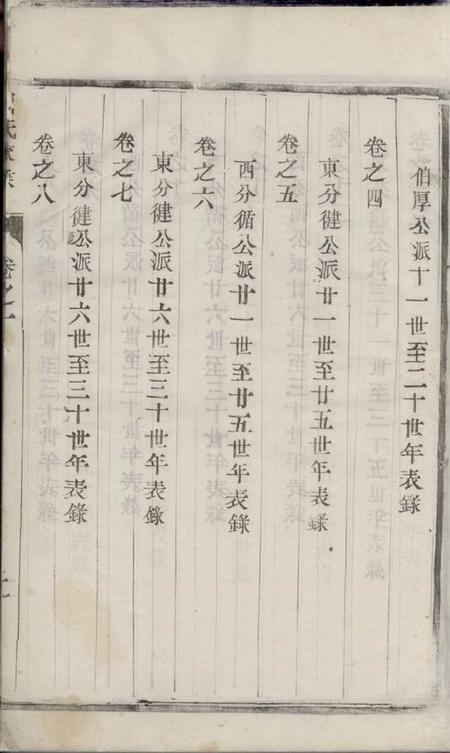 伯厚公派十一世至二十世年表錄
卷之四
東分健公派廿一世至廿五世年表錄
卷之五
西分循公派廿一世至廿五世年表錄
卷之六
東分健公派廿六世至三十世年表錄
卷之七
東分健公派廿六世至三十世年表錄
卷之八
卷之一